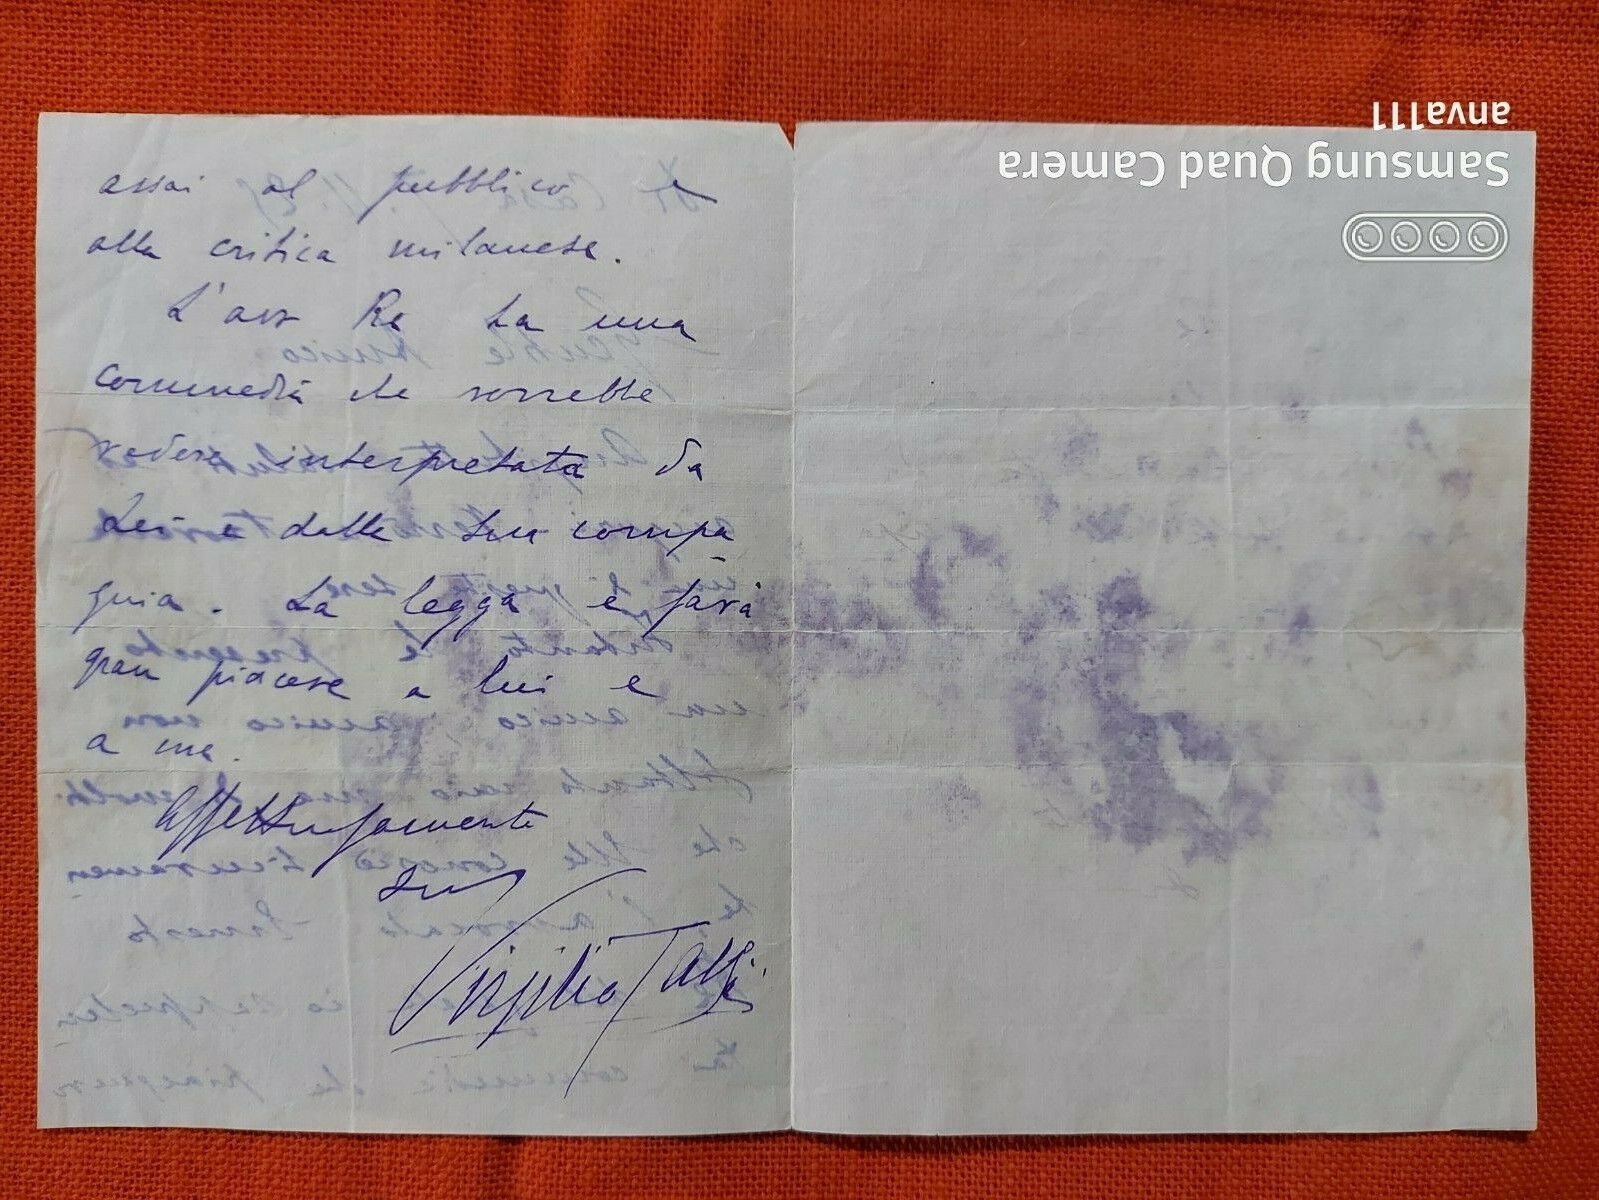 assai al pubblico e
alla critica milanese.
L'avv Re ha una
commedia che vorrebbe
vedere interpretata da
Lei e dalla Sua compa
gnia. La legga e farà
gran piacere a lui e
a me.
Affettuosamente
Suo
Virgilio Talli
Samsung Quad Camera
anva111